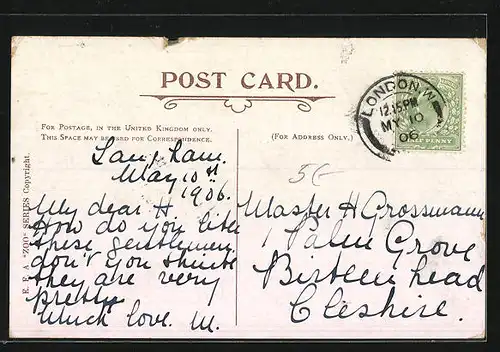 POST CARD.
LONDON. W.
12.15 PM
MY 10
06
HALFPENNY
FOR POSTAGE, IN THE UNITED KINGDOM ONLY,
THIS SPACE MAY BE USED FOR CORRESPONDENCE.
(FOR ADDRESS ONLY.)
E. F. A "ZOO" SERIES Copyright.
May 10th
1906.
My dear H
How do you like
these gentlemen
don't you think
they are very
pretty
Much love. M.
5
Master H Grossmann
1 Palm Grove
Birkenhead
Cheshire.